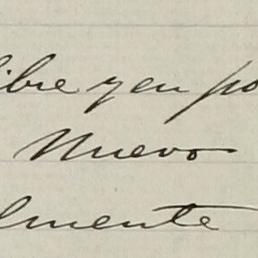 ibre y en po
Nuevo
lmente